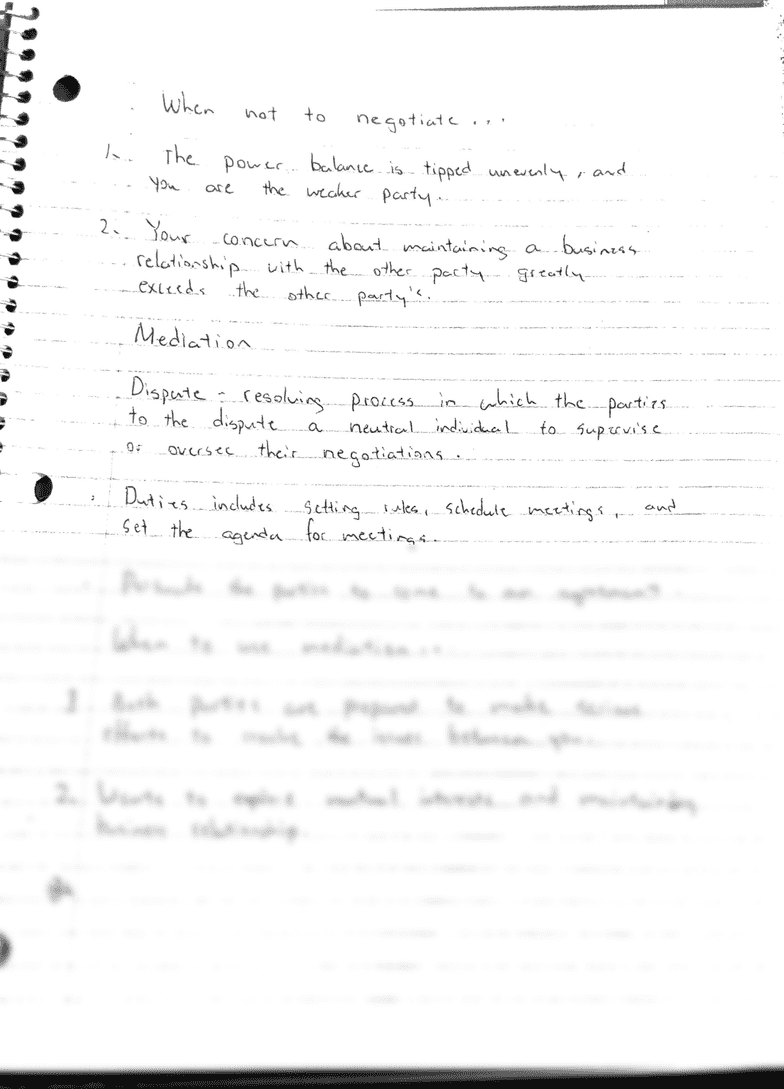 When not to negotiate...
1. The power balance is tipped unevenly, and
you are the weaker party.
2. Your concern about maintaining a business
relationship with the other party greatly
exceeds the other party's.
Mediation
Dispute - resolving process in which the parties
to the dispute a neutral individual to supervise
or oversee their negotiations.
Duties includes setting rules, schedule meetings, and
set the agenda for meetings.
the parties to come to an agreement
When to use mediation...
Both parties are prepared to make serious
efforts to the issues between
2. Wants to explore mutual interests and maintaining
business relationship.